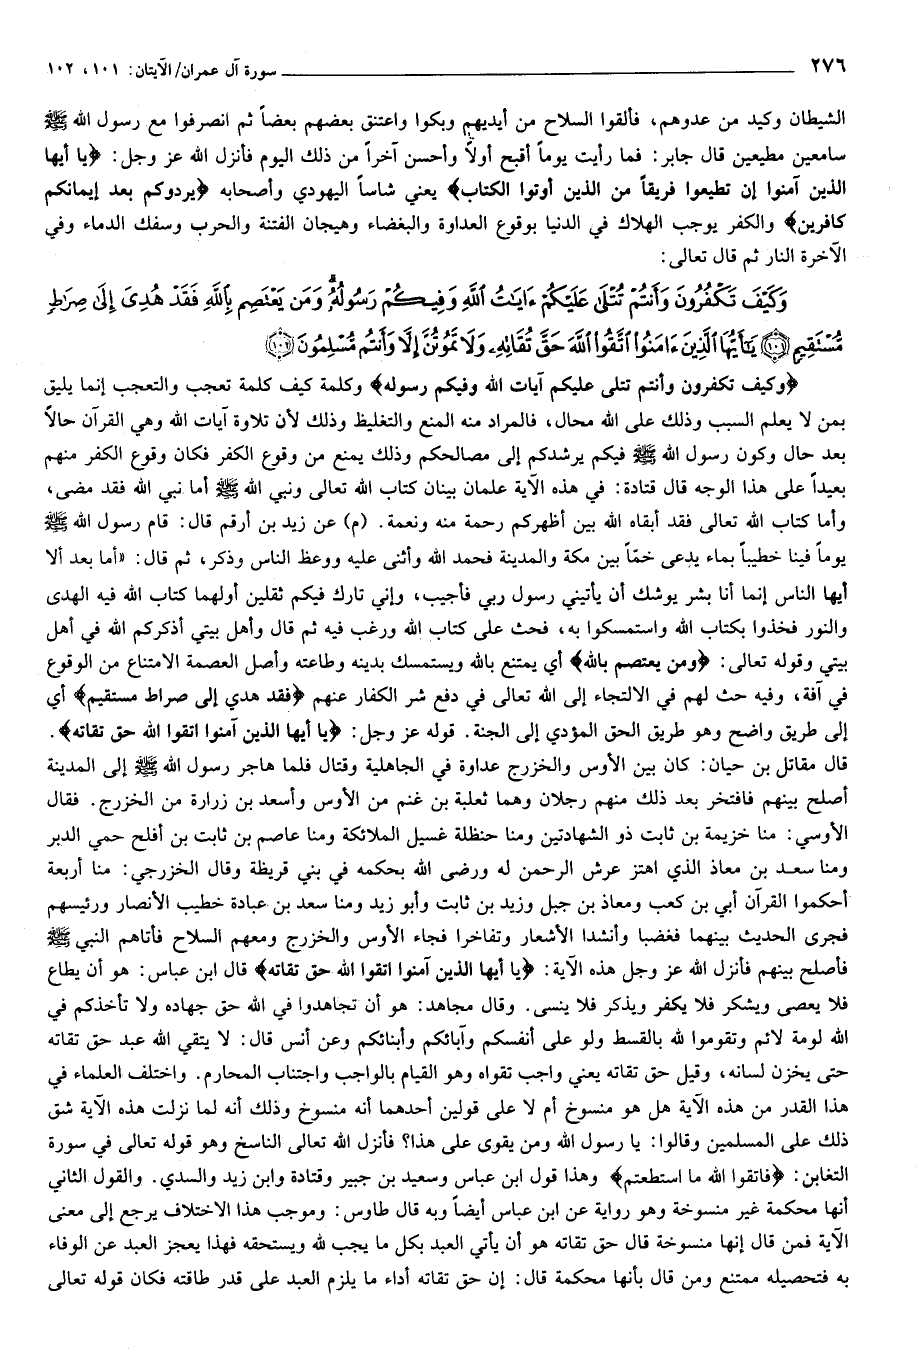 ٢٧٦ سورة آل عمران/ الآيتان: ١٠١، ١٠٢
الشيطان وكيد من عدوهم، فألقوا السلاح من أيديهم وبكوا واعتنق بعضهم بعضاً ثم انصرفوا مع رسول الله ﷺ
سامعين مطيعين قال جابر: فما رأيت يوماً أقبح أولاً وأحسن آخراً من ذلك اليوم فأنزل الله عز وجل: ﴿يا أيها
الذين آمنوا إن تطيعوا فريقاً من الذين أوتوا الكتاب﴾ يعني شاساً اليهودي وأصحابه ﴿يردوكم بعد إيمانكم
كافرين﴾ والكفر يوجب الهلاك في الدنيا بوقوع العداوة والبغضاء وهيجان الفتنة والحرب وسفك الدماء وفي
الآخرة النار ثم قال تعالى:
وَكَيْفَ تَكْفُرُونَ وَأَنتُمْ تُتْلَىٰ عَلَيْكُمْ ءَايَٰتُ ٱللَّهِ وَفِيكُمْ رَسُولُهُۥ ۗ وَمَن يَعْتَصِم بِٱللَّهِ فَقَدْ هُدِىَ إِلَىٰ صِرَٰطٍ
مُّسْتَقِيمٍ ﴿١٠١﴾ يَٰٓأَيُّهَا ٱلَّذِينَ ءَامَنُوا۟ ٱتَّقُوا۟ ٱللَّهَ حَقَّ تُقَاتِهِۦ وَلَا تَمُوتُنَّ إِلَّا وَأَنتُم مُّسْلِمُونَ ﴿١٠٢﴾
﴿وكيف تكفرون وأنتم تتلى عليكم آيات الله وفيكم رسوله﴾ وكلمة كيف كلمة تعجب والتعجب إنما يليق
بمن لا يعلم السبب وذلك على الله محال، فالمراد منه المنع والتغليظ وذلك لأن تلاوة آيات الله وهي القرآن حالاً
بعد حال وكون رسول الله ﷺ فيكم يرشدكم إلى مصالحكم وذلك يمنع من وقوع الكفر فكان وقوع الكفر منهم
بعيداً على هذا الوجه قال قتادة: في هذه الآية علمان بينان كتاب الله تعالى ونبي الله ﷺ أما نبي الله فقد مضى،
وأما كتاب الله تعالى فقد أبقاه الله بين أظهركم رحمة منه ونعمة. (م) عن زيد بن أرقم قال: قام رسول الله ﷺ
يوماً فينا خطيباً بماء يدعى خمّا بين مكة والمدينة فحمد الله وأثنى عليه ووعظ الناس وذكر، ثم قال: «أما بعد ألا
أيها الناس إنما أنا بشر يوشك أن يأتيني رسول ربي فأجيب، وإني تارك فيكم ثقلين أولهما كتاب الله فيه الهدى
والنور فخذوا بكتاب الله واستمسكوا به، فحث على كتاب الله ورغب فيه ثم قال وأهل بيتي أذكركم الله في أهل
بيتي وقوله تعالى: ﴿ومن يعتصم بالله﴾ أي يمتنع بالله ويستمسك بدينه وطاعته وأصل العصمة الامتناع من الوقوع
في آفة، وفيه حث لهم في الالتجاء إلى الله تعالى في دفع شر الكفار عنهم ﴿فقد هدي إلى صراط مستقيم﴾ أي
إلى طريق واضح وهو طريق الحق المؤدي إلى الجنة. قوله عز وجل: ﴿يا أيها الذين آمنوا اتقوا الله حق تقاته﴾.
قال مقاتل بن حيان: كان بين الأوس والخزرج عداوة في الجاهلية وقتال فلما هاجر رسول الله ﷺ إلى المدينة
أصلح بينهم فافتخر بعد ذلك منهم رجلان وهما ثعلبة بن غنم من الأوس وأسعد بن زرارة من الخزرج. فقال
الأوسي: منا خزيمة بن ثابت ذو الشهادتين ومنا حنظلة غسيل الملائكة ومنا عاصم بن ثابت بن أفلح حمي الدبر
ومنا سعد بن معاذ الذي اهتز عرش الرحمن له ورضى الله بحكمه في بني قريظة وقال الخزرجي: منا أربعة
أحكموا القرآن أبي بن كعب ومعاذ بن جبل وزيد بن ثابت وأبو زيد ومنا سعد بن عبادة خطيب الأنصار ورئيسهم
فجرى الحديث بينهما فغضبا وأنشدا الأشعار وتفاخرا فجاء الأوس والخزرج ومعهم السلاح فأتاهم النبي ﷺ
فأصلح بينهم فأنزل الله عز وجل هذه الآية: ﴿يا أيها الذين آمنوا اتقوا الله حق تقاته﴾ قال ابن عباس: هو أن يطاع
فلا يعصى ويشكر فلا يكفر ويذكر فلا ينسى. وقال مجاهد: هو أن تجاهدوا في الله حق جهاده ولا تأخذكم في
الله لومة لائم وتقوموا لله بالقسط ولو على أنفسكم وآبائكم وأبنائكم وعن أنس قال: لا يتقي الله عبد حق تقاته
حتى يخزن لسانه، وقيل حق تقاته يعني واجب تقواه وهو القيام بالواجب واجتناب المحارم. واختلف العلماء في
هذا القدر من هذه الآية هل هو منسوخ أم لا على قولين أحدهما أنه منسوخ وذلك أنه لما نزلت هذه الآية شق
ذلك على المسلمين وقالوا: يا رسول الله ومن يقوى على هذا؟ فأنزل الله تعالى الناسخ وهو قوله تعالى في سورة
التغابن: ﴿فاتقوا الله ما استطعتم﴾ وهذا قول ابن عباس وسعيد بن جبير وقتادة وابن زيد والسدي. والقول الثاني
أنها محكمة غير منسوخة وهو رواية عن ابن عباس أيضاً وبه قال طاوس: وموجب هذا الاختلاف يرجع إلى معنى
الآية فمن قال إنها منسوخة قال حق تقاته هو أن يأتي العبد بكل ما يجب لله ويستحقه فهذا يعجز العبد عن الوفاء
به فتحصيله ممتنع ومن قال بأنها محكمة قال: إن حق تقاته أداء ما يلزم العبد على قدر طاقته فكان قوله تعالى